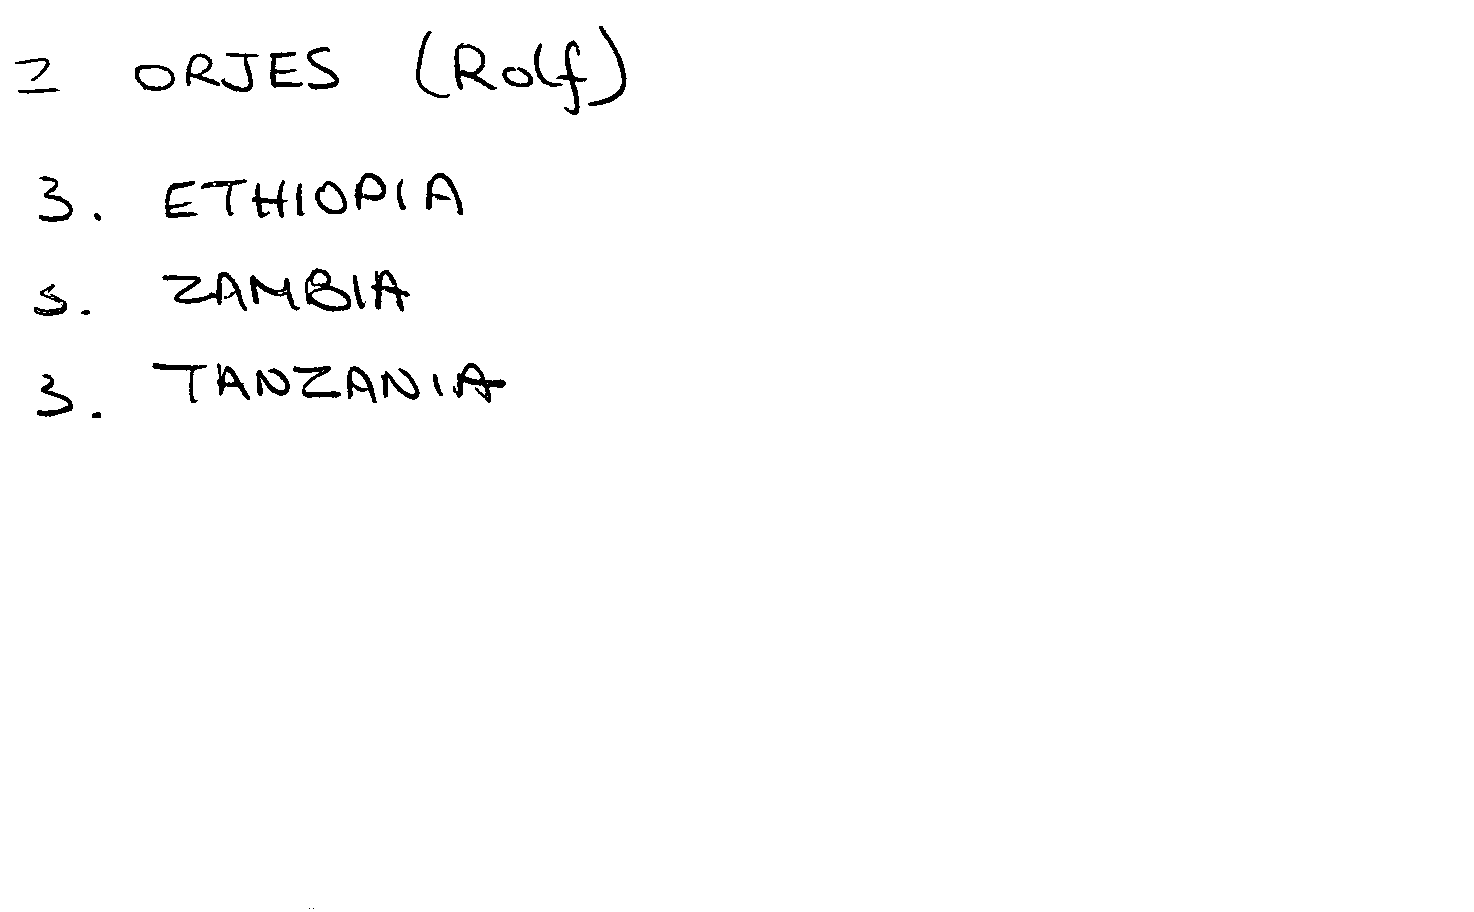 2 ORJES (Rolf)
3. ETHIOPIA
3. ZAMBIA
3. TANZANIA